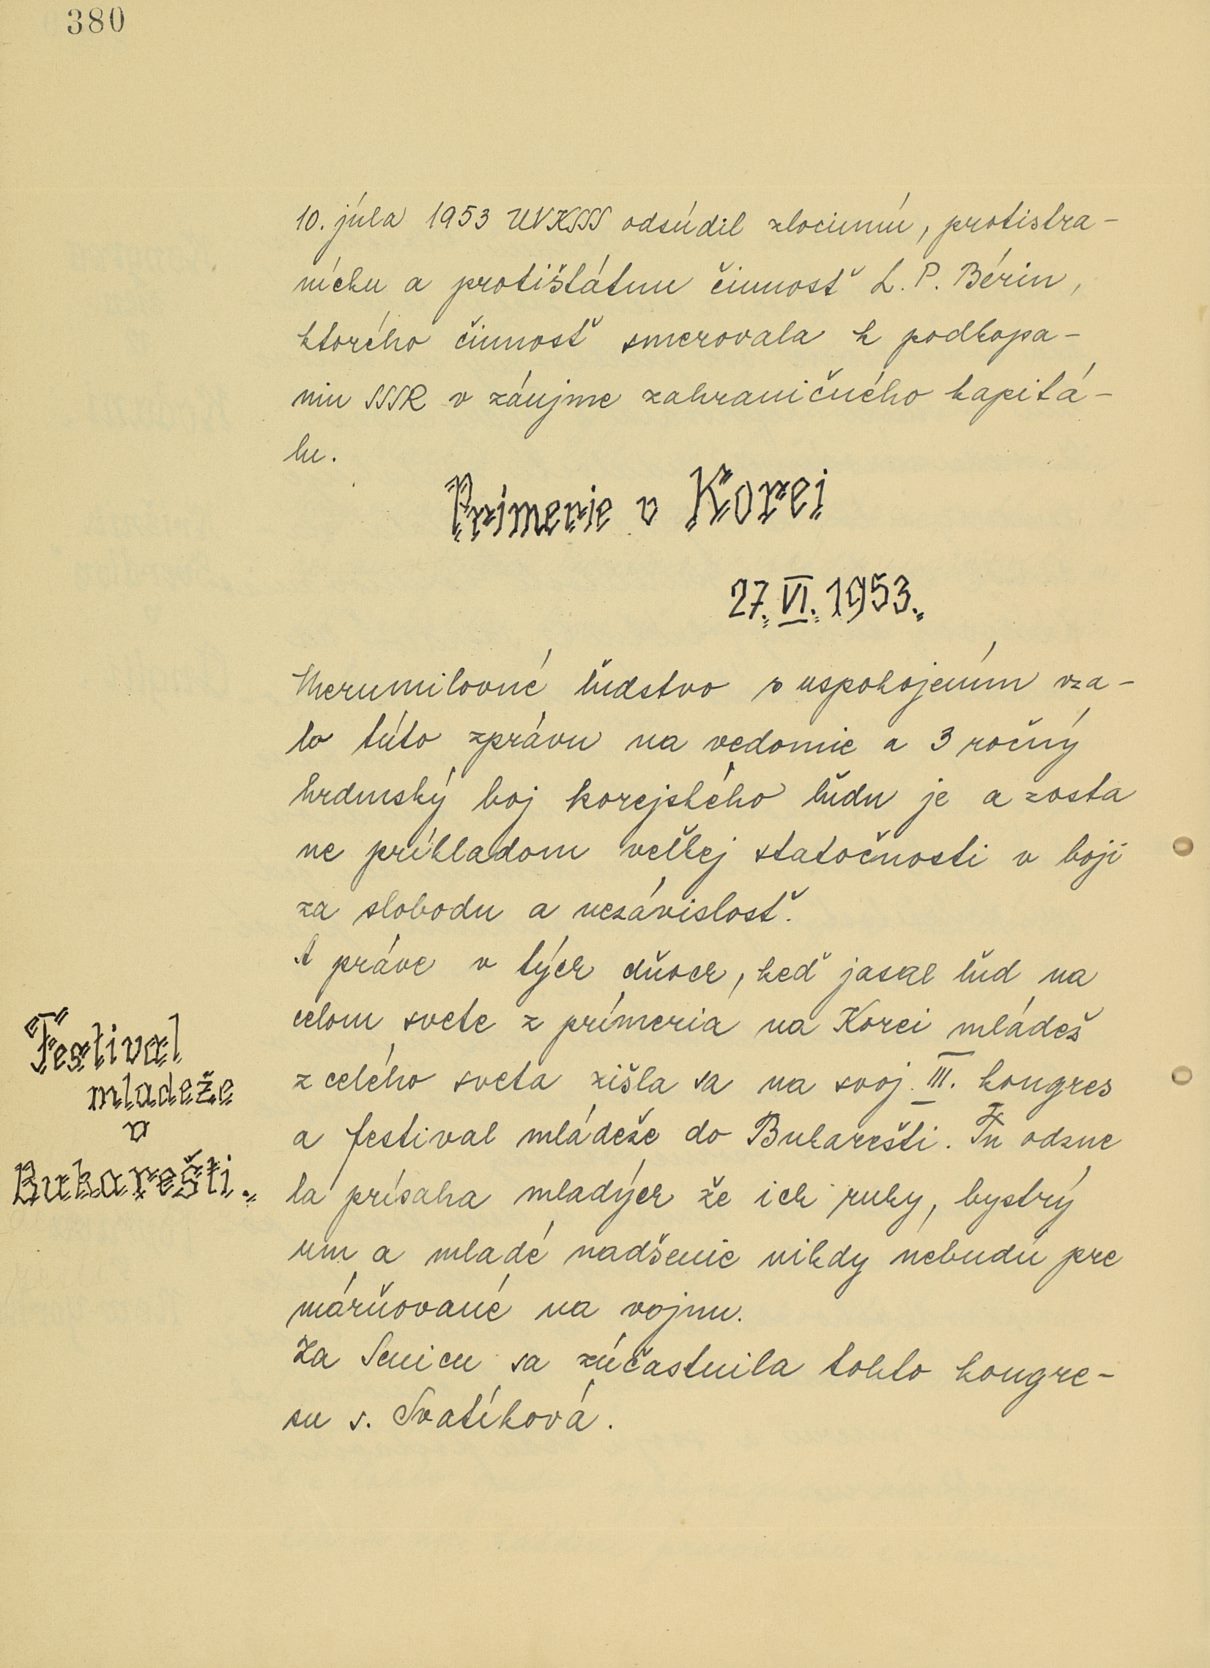 380
10. júla 1953 ÚVKSSS odsúdil zločinnú, protistra-
nícku a protištátnu činnosť L. P. Bériu,
ktorého činnosť smerovala k podkopa-
niu SSSR v záujme zahraničného kapitá-
lu.
Prímerie v Korei
27. VI. 1953.
Mierumilovné ľudstvo s uspokojením vza-
lo túto zprávu na vedomie a 3 ročný
hrdinský boj korejského ľudu je a zosta
ne príkladom veľkej statočnosti v boji
za slobodu a nezávislosť.
A práve v tých dňoch, keď jasal ľud na
celom svete z prímeria na Korei mládež
z celého sveta zišla sa na svoj III. kongres
a festival mládeže do Bukarešti. Tu odzne
la prísaha mladých že ich ruky, bystrý
um a mladé nadšenie nikdy nebudú pre
márňované na vojnu.
Za Senicu sa zúčastnila tohto kongre-
su s. Svatíková.
Festival
mladeže
v
Bukarešti.